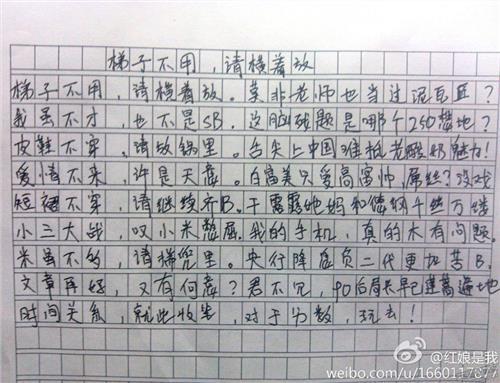 梯子不用,请横着放
梯子不用,请横着放。莫非老师也当过泥瓦匠?
我虽不才,也不是SB,这脑残题是哪个250想地?
皮鞋不穿,请放锅里。舌尖上中国难抵老酸奶魅力!
爱情不来,许是天意。白富美只爱高富帅,屌丝?没戏
短裙不穿,请继续齐B。干露露她妈和倭钢千丝万缕
小三大战,叹小米憋屈。我的手机,真的木有问题。
米虽不多,请稀兜里。央行降息负二代更加苦B.
文章再好,又有何意?君不见,90后局长早已遍地
时间关系,就此收笔,对于分数,玩去!
@红娘是我
weibo.com/u/1660117877